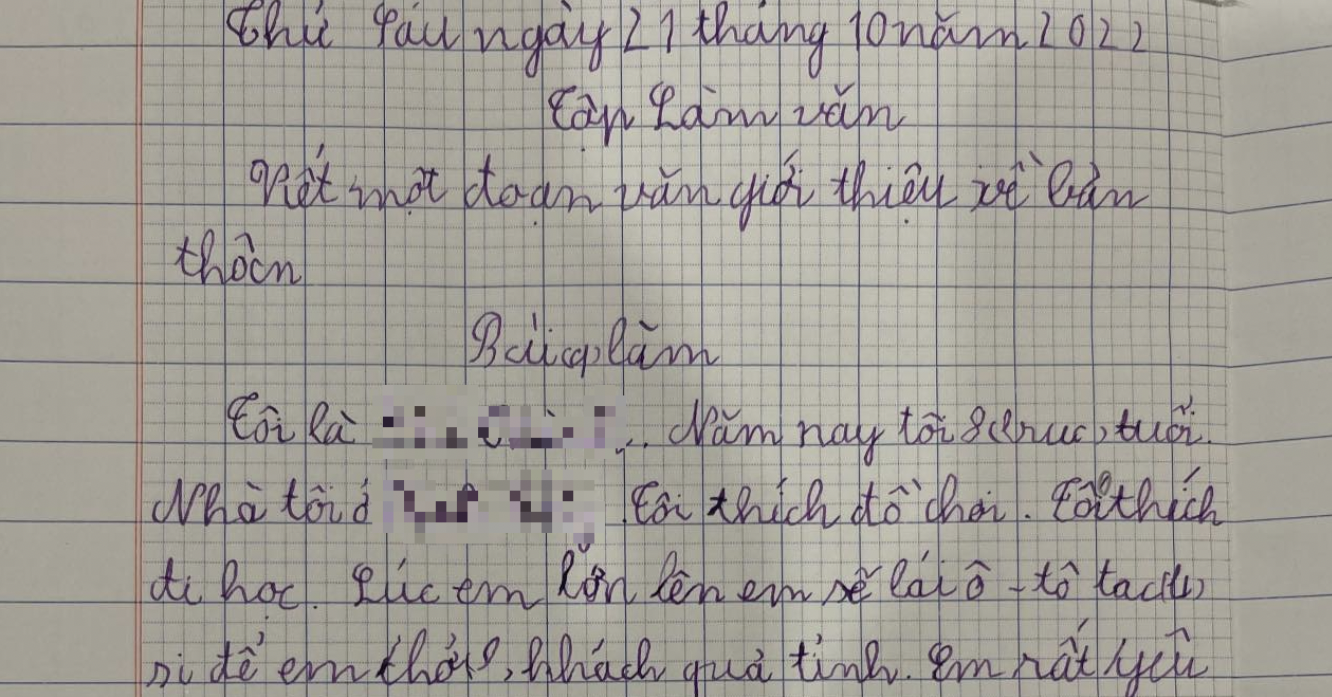 Thứ Sáu ngày 21 tháng 10 năm 2022
Tập Làm văn
Viết một đoạn văn giới thiệu về bản
thân
Bài làm
Tôi là Năm nay tôi 8 tuổi.
Nhà tôi ở Tôi thích đồ chơi. Tôi thích
đi học. Lúc em lớn lên em sẽ lái ô-tô tac
si để em chở khách quả tỉnh. Em rất yêu